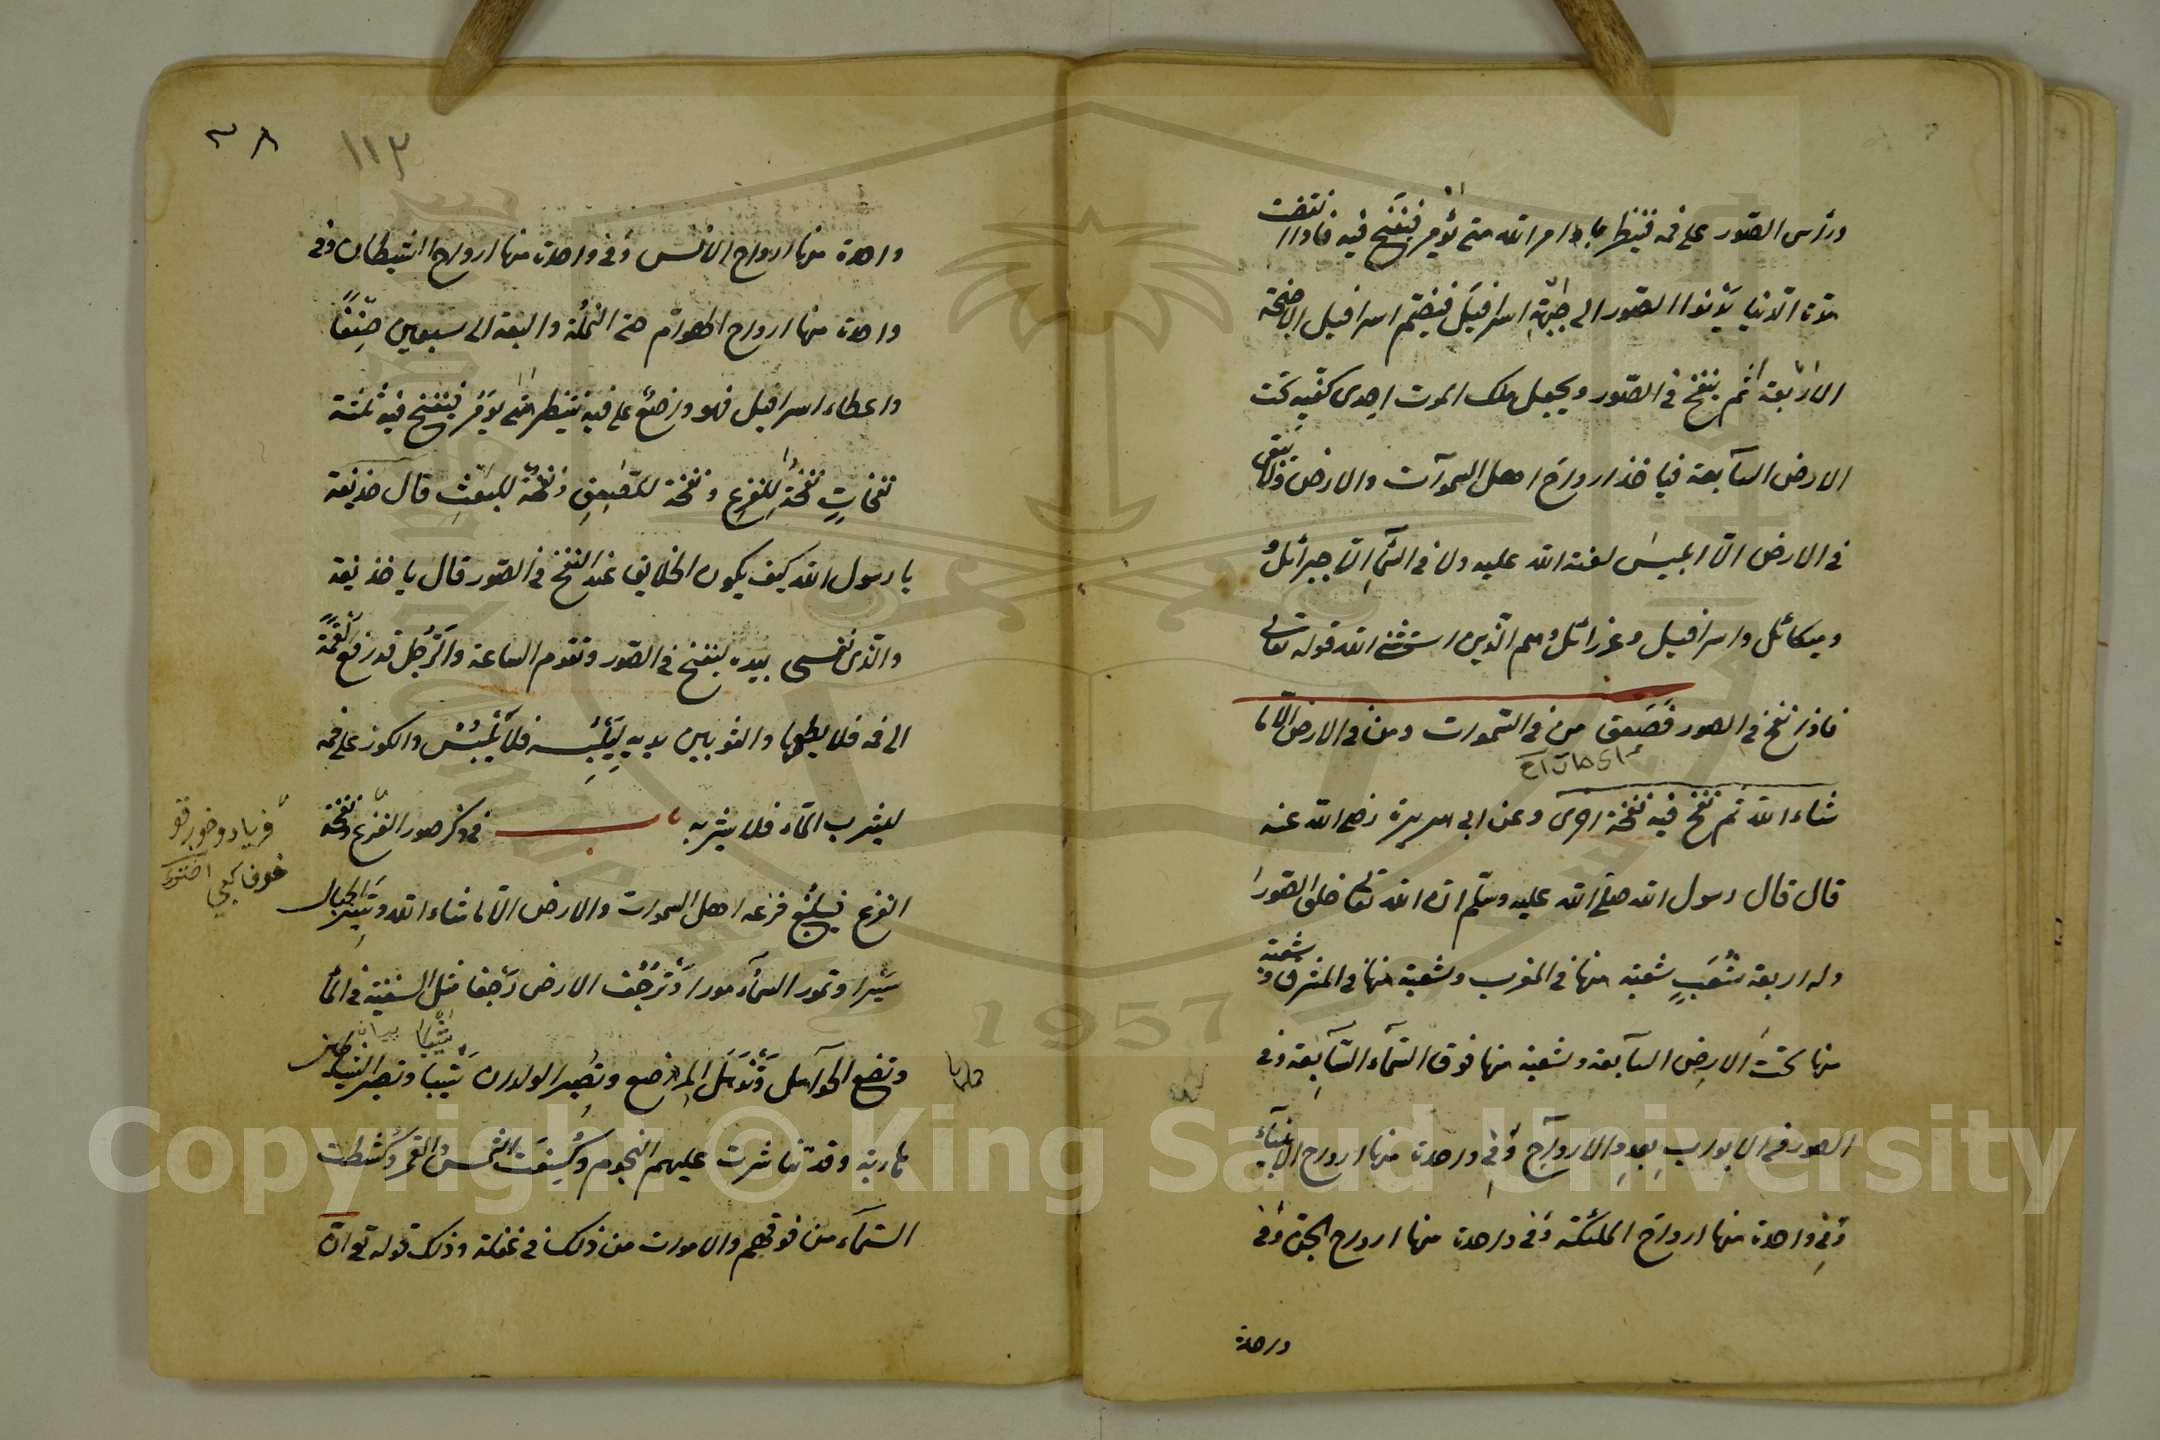 ورأس الصّور على فمه فينظر امر الله متى يؤمر فينفخ فيه فاذا انقضت
مدّة الدّنيا يدنوا الصّور الى جبهة اسرافيل فيضم اسرافيل الاجنحة
الاربعة ثم ينفخ فى الصّور ويجعل ملك الموت احدى كفّيه تحت
الارض السّابعة فياخذ ارواح اهل السموات والارض ولا يبقى
فى الارض الّا ابليس لعنة الله عليه ولا فى السّماء الّا جبرائل و
وميكائل واسرافيل وعزرائل وهم الّذين استثنى الله قوله تعالى
فاذا نفخ فى الصور فصعق من فى السّموات ومن فى الارض الّا ما
شاء الله ثم نفخ فيه نفخة اخرى وعن ابى هريرة رضى الله عنه
قال قال رسول الله صلّى الله عليه وسلّم ان الله تعالى خلق الصّور
وله اربعة شعب شعبة منها فى المغرب وشعبة منها فى المشرق وشعبة
منها تحت الارض السّابعة وشعبة منها فوق السّماء السّابعة وفى
الصور من الابواب بعدد الارواح وفى واحدة منها ارواح الانبياء
وفى واحدة منها ارواح الملئكة وفى واحدة منها ارواح الجنّ وفى
واحدة
٣٨
١١٣
واحدة منها ارواح الانس وفى واحدة منها ارواح الشيطان وفى
واحدة منها ارواح الهوام حتى النملة والبقة الى سبعين صنفًا
واعطاه اسرافيل فهو واضع على فيه ينتظر متى يؤمر فينفخ فيه ثلثة
نفخات نفخة للفزع ونفخة للصّعق ونفخة للبعث قال حذيفة
يا رسول الله كيف يكون الخلايق عند النفخ فى الصّور قال يا حذيفة
والّذى نفسى بيده لينفخ فى الصّور وتقوم الساعة والرّجل قد رفع لقمة
الى فمه فلا يطعمها والثوب بين يديه ليلبسه فلا يلبس والكوز على فمه
ليشرب الماء فلا يشربه فى ذكر صور الفزع ونفخة
الفزع فيبلغ فزعه اهل السموات والارض الّا ما شاء الله وتسير الجبال
سيرا وتمور السماء مورا وترجف الارض رجفا مثل السفينة فى الماء
وتضع الحوامل وتذهل المراضع وتصير الولدان شيبا وتصير الشياطين
هاربة وقد تناثرت عليهم النجوم وكسفت الشمس والقمر وكشطت
السّماء من فوقهم والاموات من ذلك فى غفلة وذلك قوله تع انّ
Copyright © King Saud University
1957